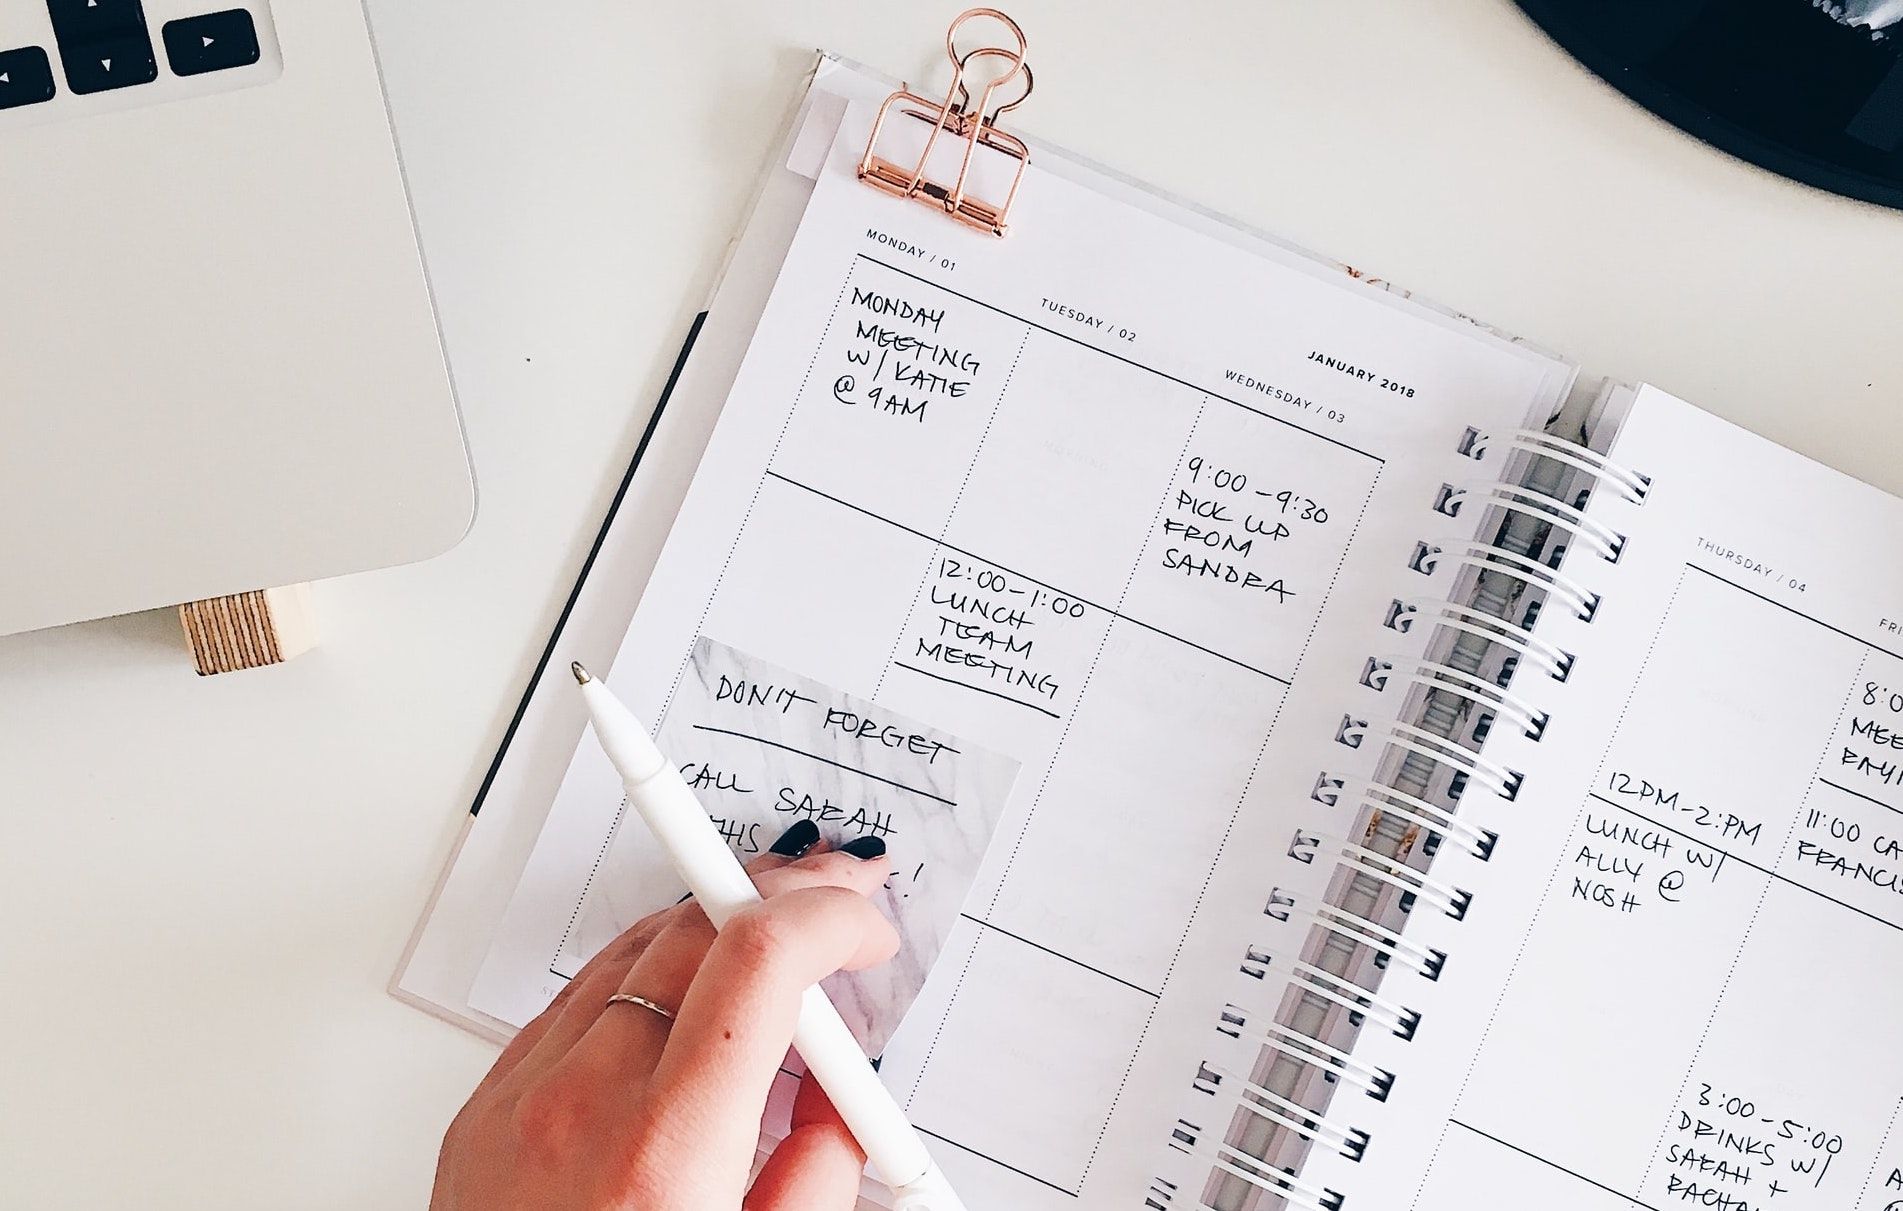 MONDAY / 01
MONDAY
MEETING
W/ KATIE
@ 9AM
TUESDAY / 02
12:00-1:00
LUNCH
TEAM
MEETING
JANUARY 2018
WEDNESDAY / 03
9:00-9:30
PICK UP
FROM
SANDRA
DON'T FORGET
CALL SARAH
THIS
!
THURSDAY / 04
12PM-2:PM
LUNCH W/
ALLY @
NOSH
3:00-5:00
DRINKS W/
SARAH +
11:00